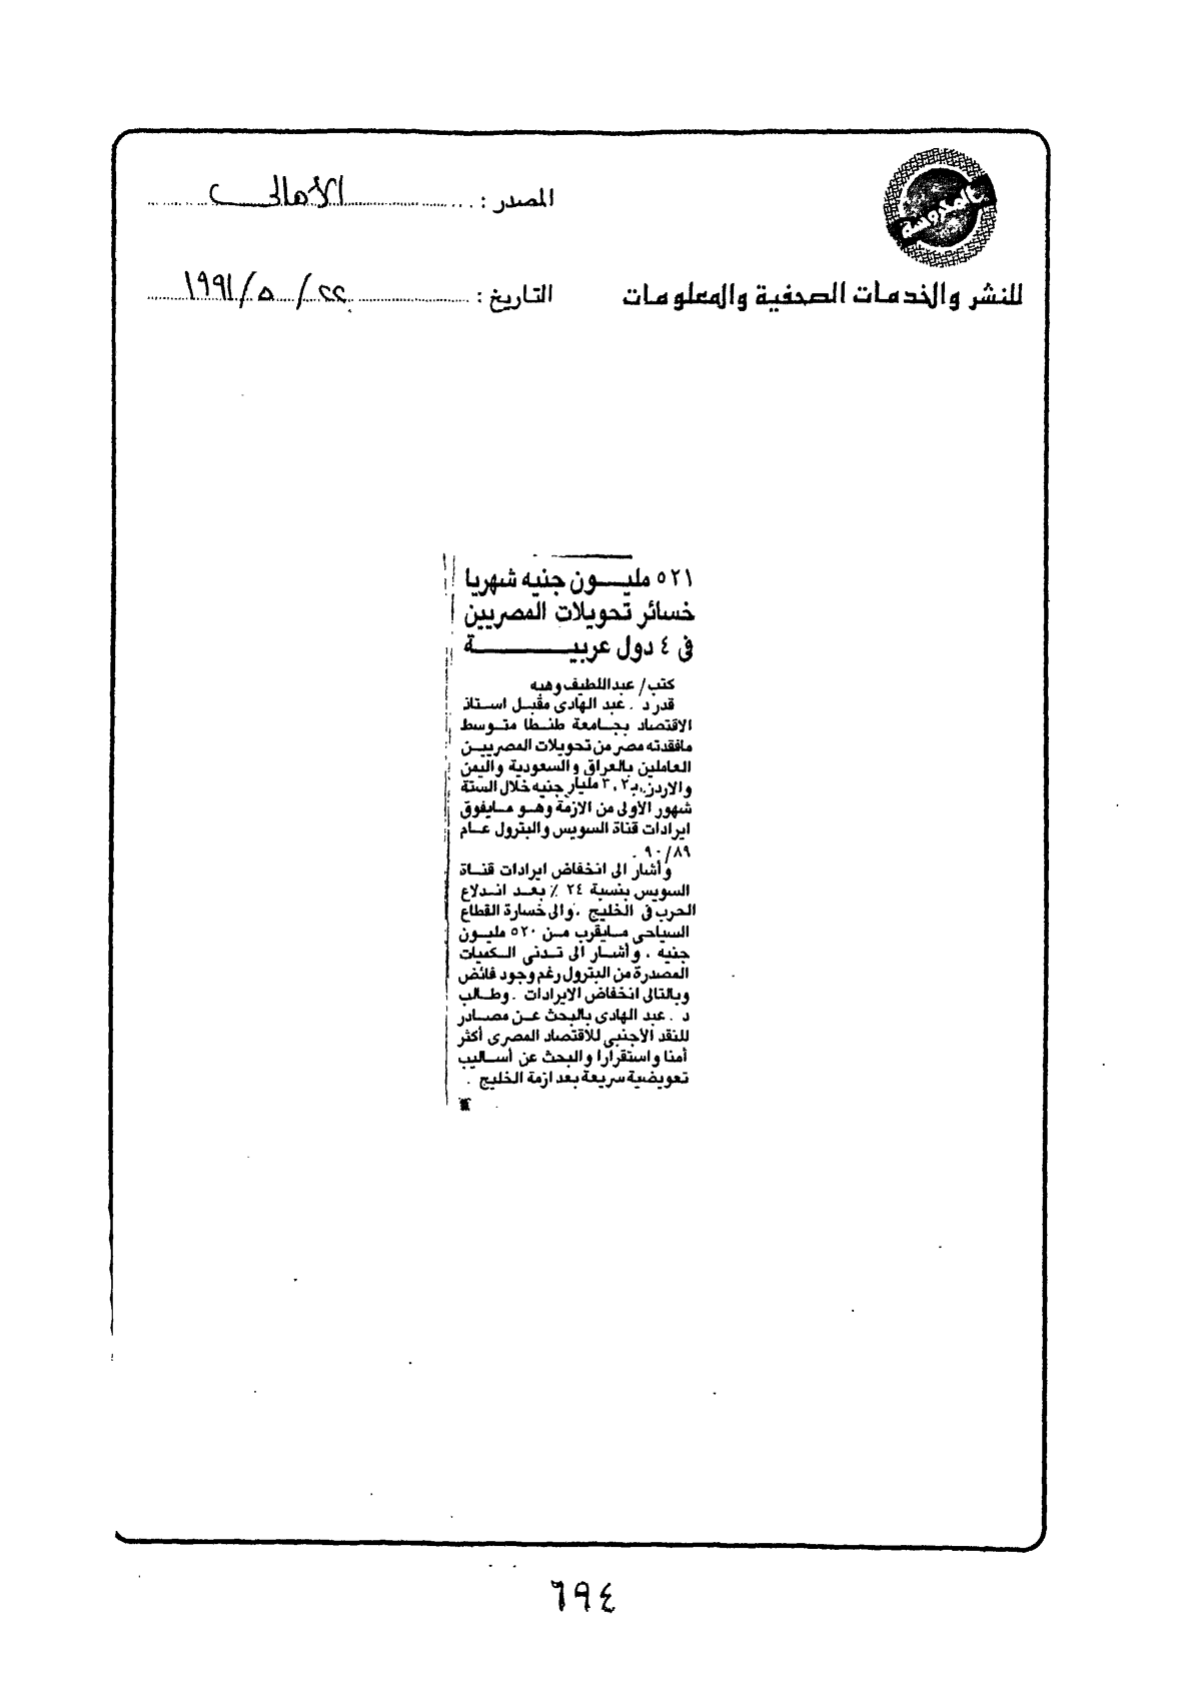 المحروسة
للنشر والخدمات الصحفية والمعلومات
المصدر : الأهالى
التاريخ : ٢٢ / ٥ / ١٩٩١
٥٢١ مليون جنيه شهريا
خسائر تحويلات المصريين
فى ٤ دول عربية
كتب / عبداللطيف وهبه
قدر د . عبد الهادى مقبل استاذ
الاقتصاد بجامعة طنطا متوسط
مافقدته مصر من تحويلات المصريين
العاملين بالعراق والسعودية واليمن
والاردن بـ ٣,٢ مليار جنيه خلال الستة
شهور الأولى من الازمة وهو مايفوق
ايرادات قناة السويس والبترول عام
٩٠/٨٩ .
وأشار الى انخفاض ايرادات قناة
السويس بنسبة ٢٤ ٪ بعد اندلاع
الحرب فى الخليج ، والى خسارة القطاع
السياحى مايقرب من ٥٢٠ مليون
جنيه ، وأشار الى تدنى الكميات
المصدرة من البترول رغم وجود فائض
وبالتالى انخفاض الايرادات . وطالب
د . عبد الهادى بالبحث عن مصادر
للنقد الأجنبى للاقتصاد المصرى أكثر
أمنا واستقرارا والبحث عن أساليب
تعويضية سريعة بعد ازمة الخليج .
٦٩٤